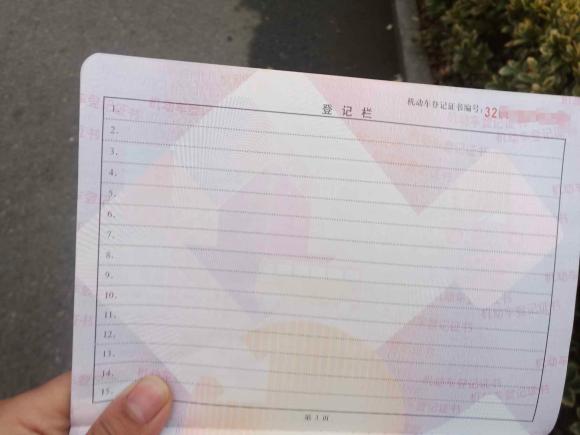 机动车登记证书编号:32
登记栏
1.
2.
3.
4.
5.
6.
7.
8.
9.
10.
11.
12.
13.
14.
15.
第 3 页